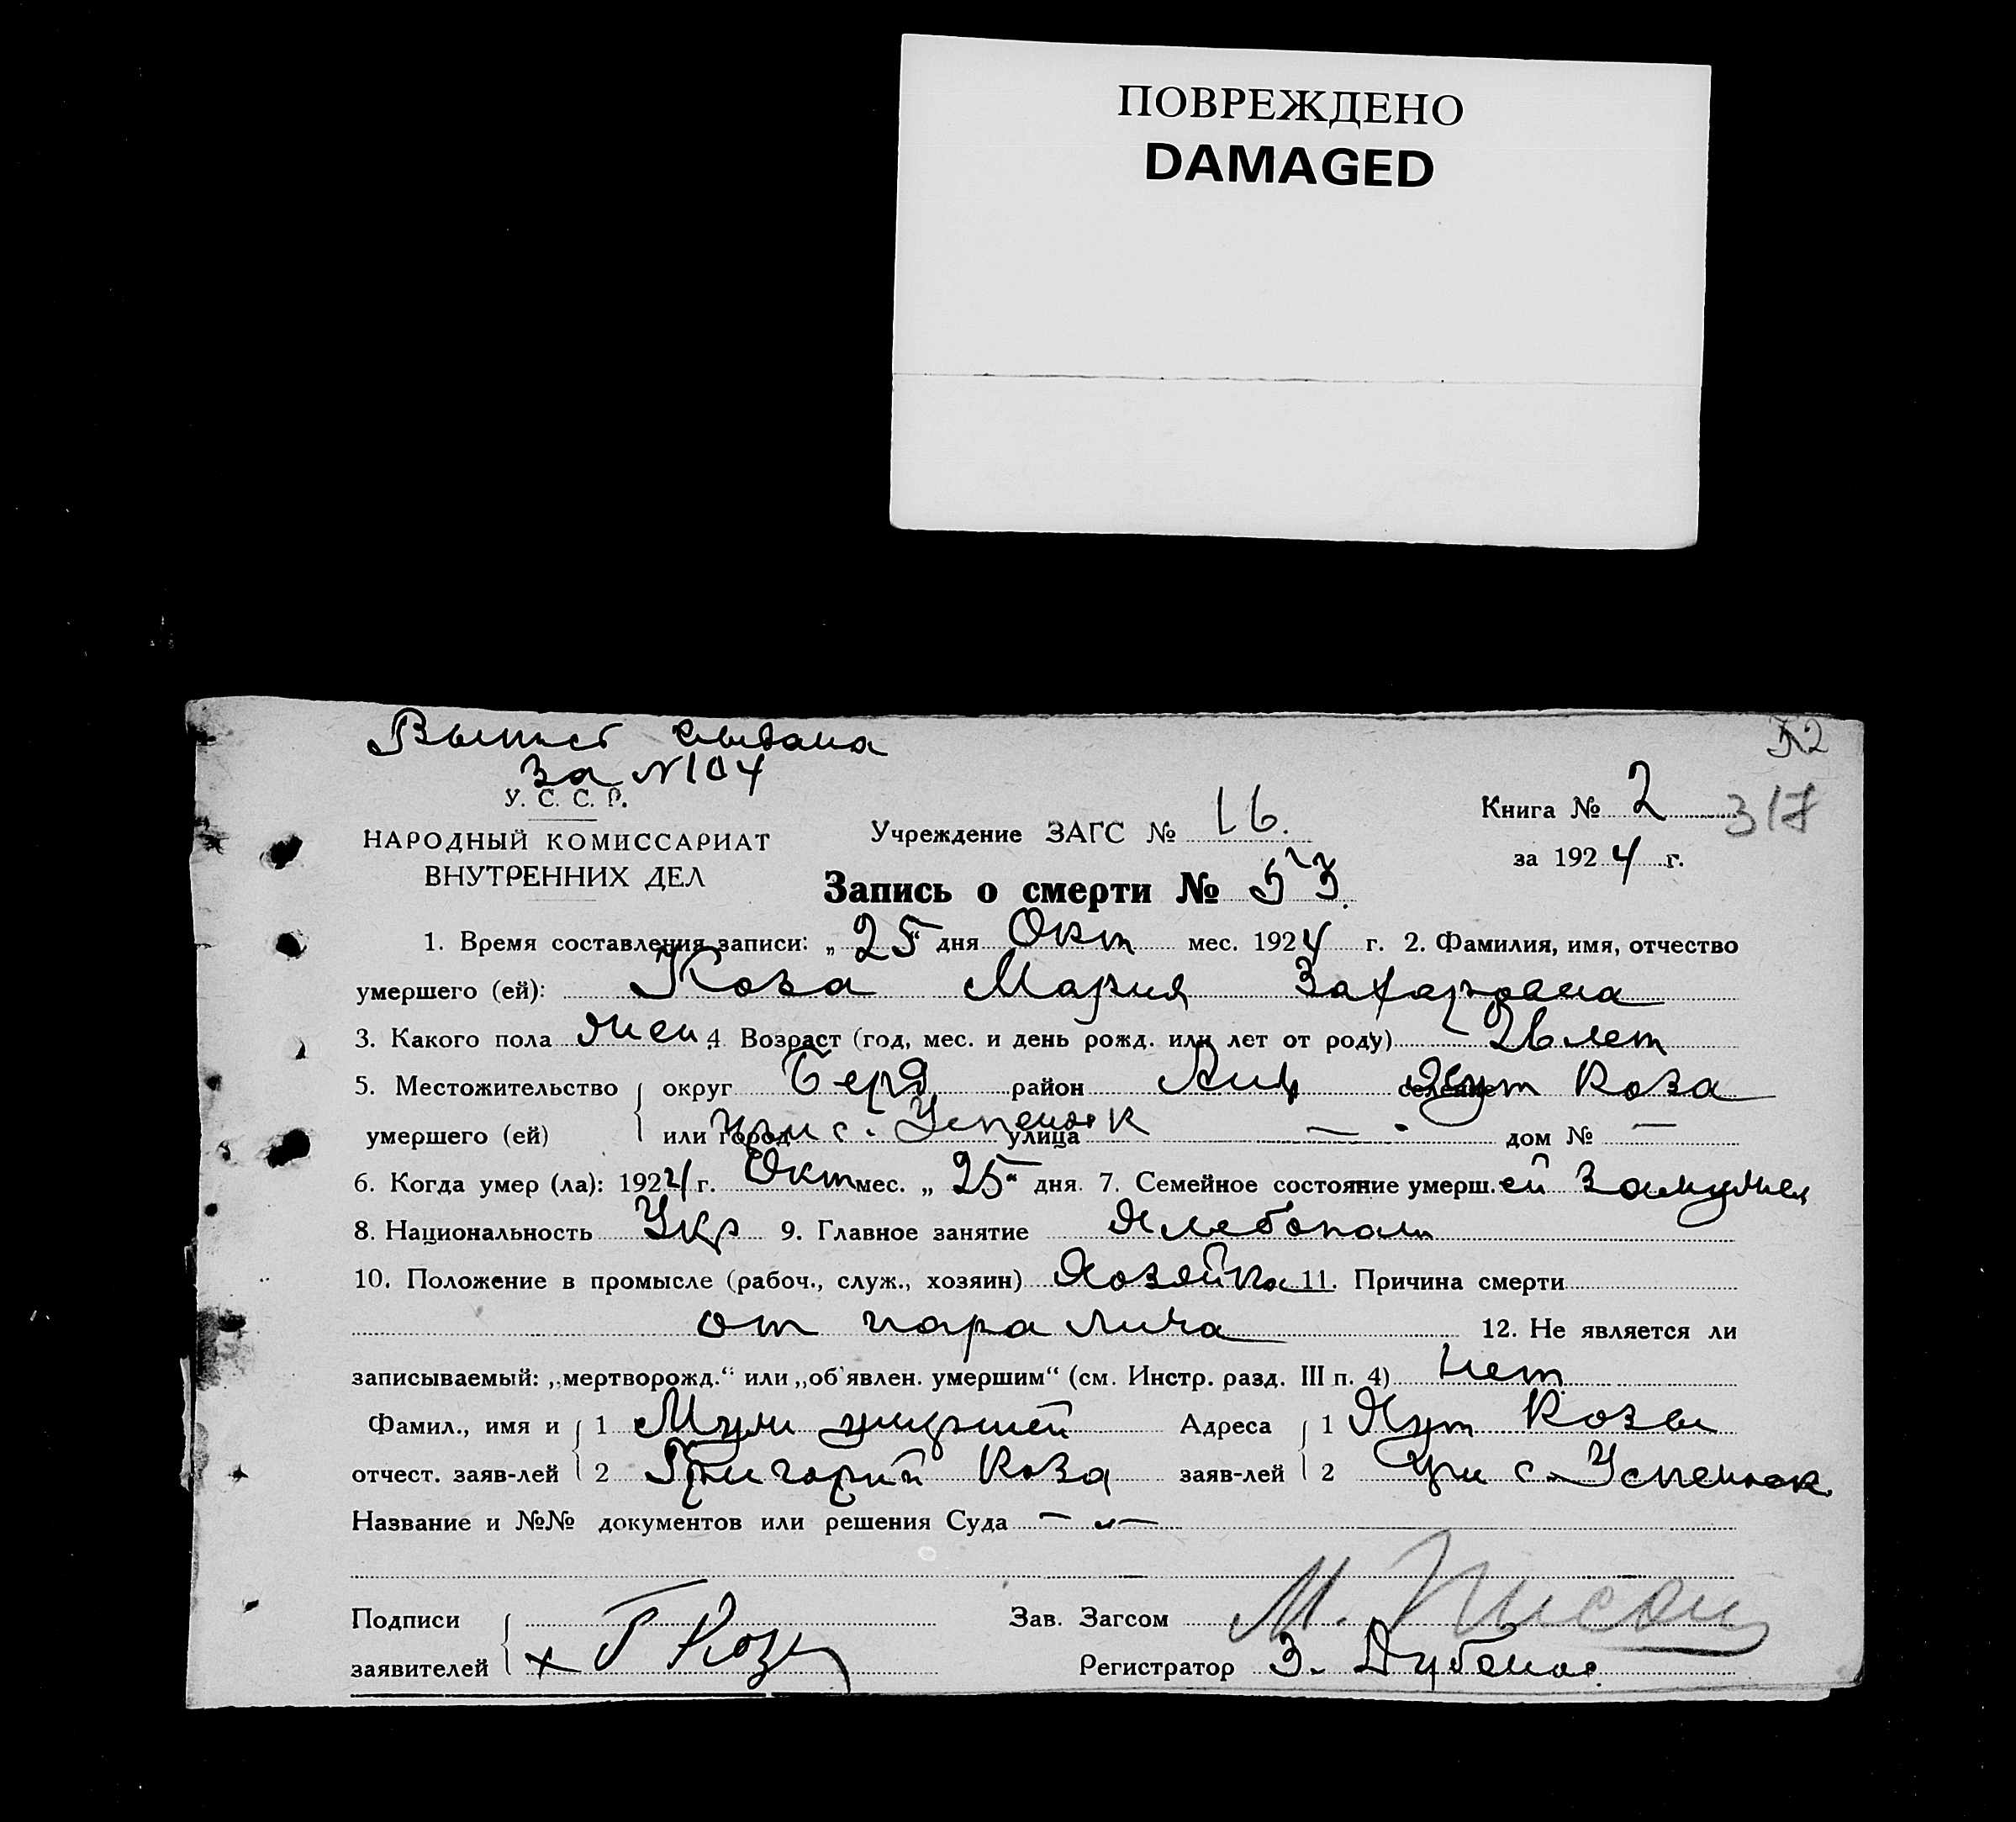 ПОВРЕЖДЕНО
DAMAGED
Выпись выдана
за №104
У. С. С. Р.
НАРОДНЫЙ КОМИССАРИАТ
ВНУТРЕННИХ ДЕЛ
Учреждение ЗАГС № 16.
Книга № 2 317
за 1924 г.
Запись о смерти № 53.
1. Время составления записи: „25“ дня Окт мес. 1924 г. 2. Фамилия, имя, отчество
умершего (ей): Коза Мария Захаровна
3. Какого пола жен 4 Возраст (год, мес. и день рожд. или лет от роду) 26 лет
5. Местожительство округ Берд район Анд селение Хут Коза
умершего (ей) или город при с. Успенск улица — дом № —
6. Когда умер (ла): 1924 г. Окт мес. „25“ дня 7. Семейное состояние умерш.ей Замужея
8. Национальность Укр 9. Главное занятие Хлебопаш
10. Положение в промысле (рабоч., служ., хозяин) Хозяйка 11. Причина смерти
от паралича 12. Не является ли
записываемый: „мертворожд.“ или „об'явлен. умершим“ (см. Инстр. разд. III п. 4) Нет
Фамил., имя и 1 Муж умершей Адреса 1 Хут Козы
отчест. заяв-лей 2 Григорий Коза заяв-лей 2 при с. Успенск.
Название и №№ документов или решения Суда — —
Подписи Зав. Загсом М.
заявителей х Г Коза Регистратор З.